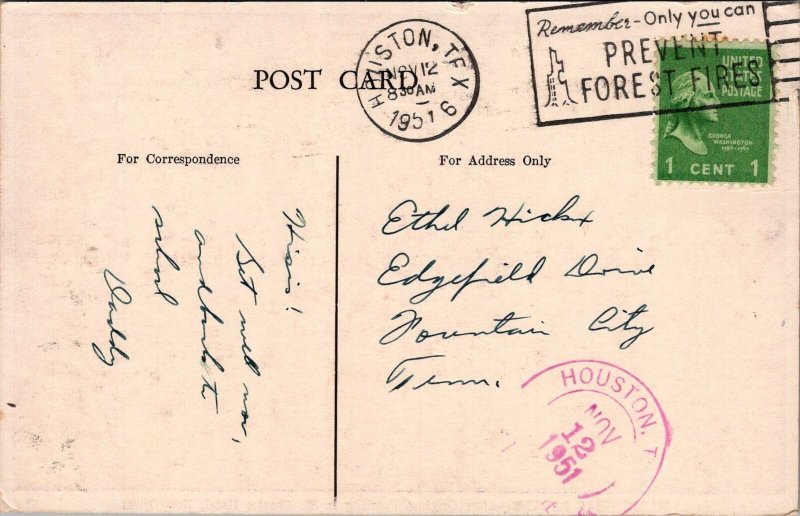 Remember-Only you can
PREVENT
FOREST FIRES
HOUSTON, TEX
NOV 12
830 AM
1951
6
POST CARD
UNITED
STATES
POSTAGE
GEORGE
WASHINGTON
1789-1797
1 CENT 1
For Correspondence
For Address Only
Get well now,
and back to
school
Daddy
Ethel Hicks
Edgefield Drive
Fountain City
Tenn.
HOUSTON, T
NOV
12
1951